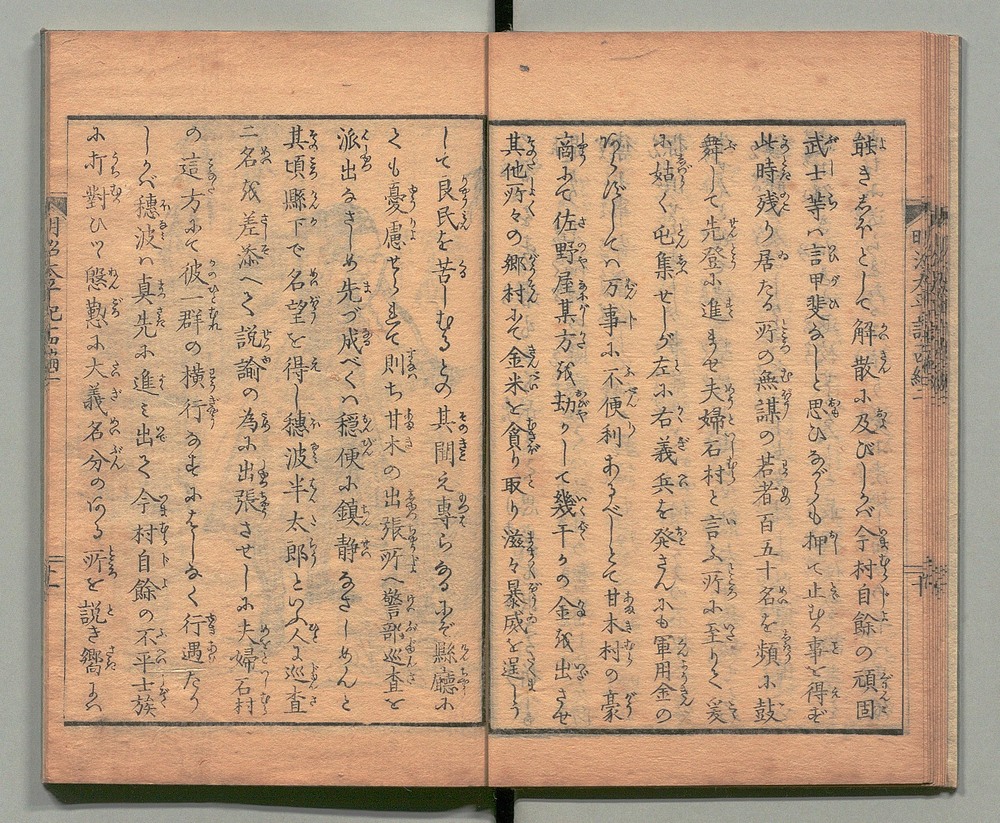 能きしほとして解散に及びしかバ今村自餘の頑固
武士等ハ言甲斐なしと思ひながらも押て止むる事を得ず
此時残り居たる所の無謀の若者百五十名を頻に鼓
舞して先登に進ませ夫婦石村と言ふ所に至りて爰
に姑く屯集せしが左に右義兵を発さんにも軍用金の
あらずしてハ万事に不便利あるべしとて甘木村の豪
商にて佐野屋某方を劫かして幾干かの金を出させ
其他所々の郷村にて金米を貪り取り滋々暴威を逞しう
して良民を苦しむるとの其聞え専らなるにぞ縣廳に
ても憂慮せられて則ち甘木の出張所へ警部巡査を
派出なさしめ先づ成べくハ穏便に鎮静なさしめんと
其頃縣下で名望を得し穂波半太郎といふ人に巡査
二名を差添へて説諭の為に出張させしに夫婦石村
の這方にて彼一群の横行なすにはしなく行遇たり
しかバ穂波ハ真先に進み出て今村自餘の不平士族
に打對ひつ慇懃に大義名分のある所を説き嚮にハ